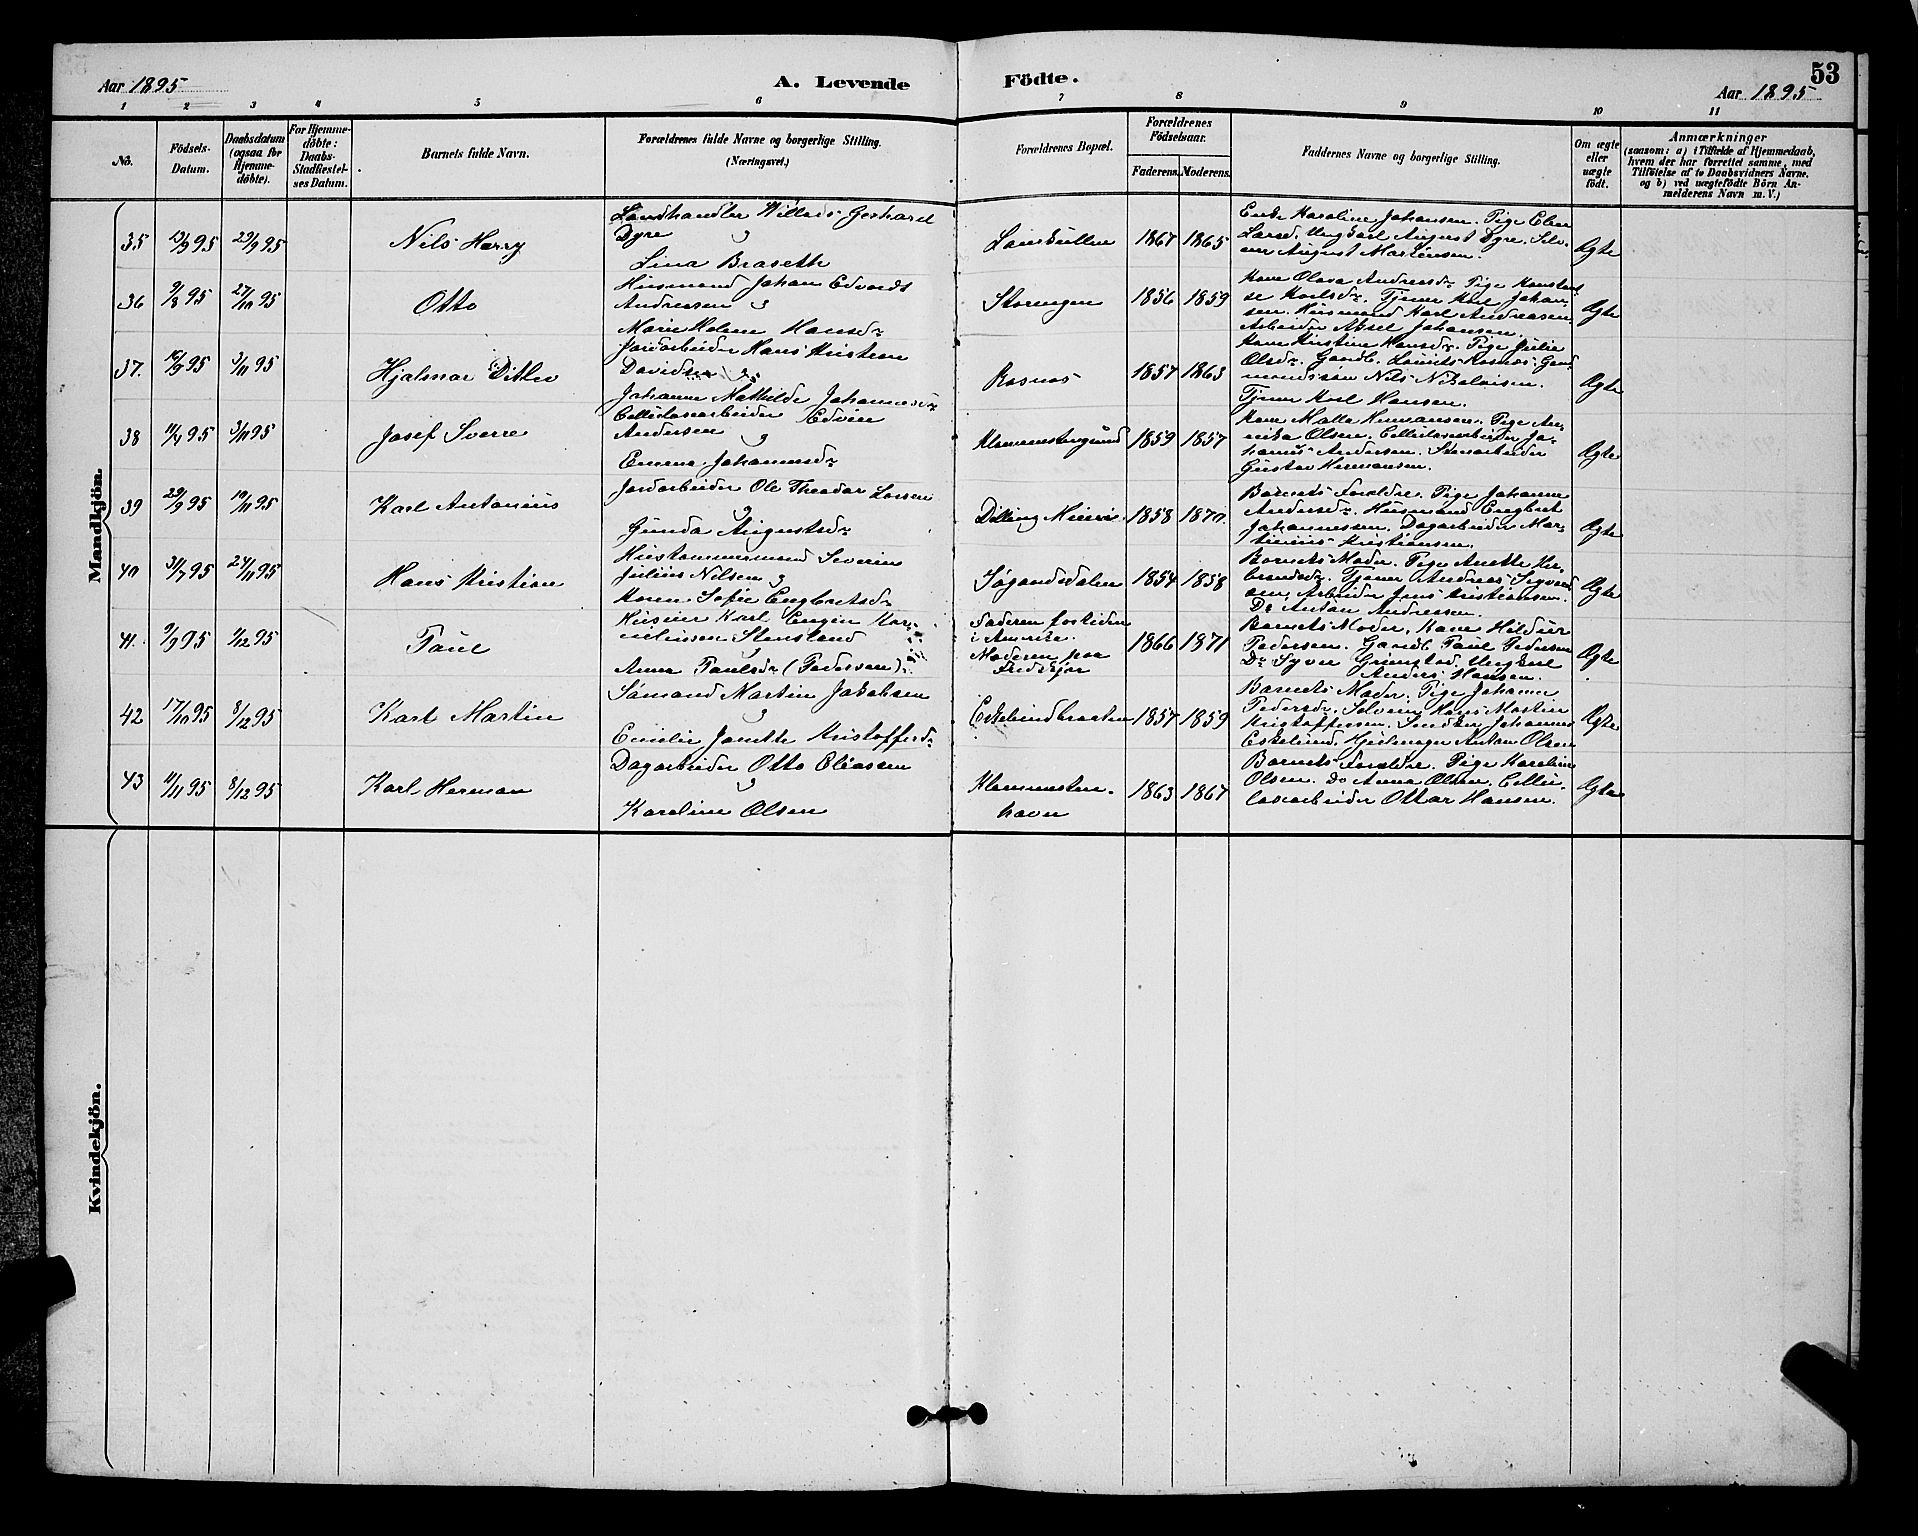 53
Aar 1895
A. Levende Födte.
Aar 1895
1 2 3 4 5 6 7 8 9 10 11
No.
Födsels-Datum.
Daabsdatum (ogsaa for Hjemme-döbte).
For Hjemme-döbte: Daabs-Stadfæstel-ses Datum.
Barnets fulde Navn.
Forældrenes fulde Navne og borgerlige Stilling.
(Næringsvei.)
Forældrenes Bopæl.
Forældrenes Födselsaar.
Faderens. Moderens.
Faddernes Navne og borgerlige Stilling.
Om ægte eller uægte födt.
Anmærkninger
(saasom: a) i Tilfælde af Hjemmedaab,
hvem der har forrettet samme, med
Tilföielse af to Daabsvidners Navne.
og b) ved uægtefödte Börn An-
melderens Navn m. V.)
Mandkjön.
35 13/9 95 29/9 95 Nils Harry
Landhandler Willads Gerhard
Dyre og
Lina Braseth
1867 1865
Enke Karoline Johansen. Pige Elen
Larsd. Ungkarl August Dyre. Selv-
eier August Martensen.
Ægte
36 9/8 95 27/10 95 Otto
Husmand Johan Edvard
Andreasen og
Marie Helene Hansdr
Storengen 1856 1859
Kone Olava Andreasdr Pige Konstan-
se Karlsdr. Tjener Karl Johan-
sen. Husmand Karl Andreasen
Arbeider Aksel Johansen.
Ægte
37. 3/11 95 Hjalmar Ditlev
Jordarbeider Hans Kristian
Davidsen og
Johanne Mathilde Johannesdr
Rosnes 1857 1863
Kone Kristine Hansdr. Pige Julia
Olsdr. Gaardb. Laurits Rosnes. Gaard-
mandssön Nils Nikolaisen.
Tjener Karl Hansen.
Ægte
38 3/11 95 Josef Sverre
Cellulosearbeider Edvin
Andersen og
Emma Johannesdr
1859 1857
Kone Malla Hermansen. Pige An-
nika Olsen. Cellulosearbeider Jo-
hannes Andersen. Stenarbeider
Gustav Hermansen.
Ægte
39 29/9 95 10/11 95 Karl Antonius
Jordarbeider Ole Theodor Larsen
og
Gunda Augustsdr
Dilling 1858 1870.
Barnets Forældre. Pige Johanne
Andersdr. Husmand Engbret
Johannessen. Dagarbeider Mar-
tinius Kristiansen.
Ægte
40 31/7 95 24/11 95 Hans Kristian
Severin
Julius Nilsen og
Karen Sofie Engbretsdr
1854 1858
Barnets Moder. Pige Anette Her-
brandsdr. Tjener Andreas Sigvard-
sen, Arbeider Jens Kristiansen.
Do Anton Andressen.
Ægte
41. 9/9 95 1/12 95 Paul
Huseier Karl Eugen Kor-
neliussen Stensland
og
Anna Paulsdr (Pedersen).
Faderen fortiden
i Amerika.
Moderen paa
1866 1871
Barnets Moder. Kone Hildur
Pedersen. Gaardb. Paul Pedersen
Do Syver Grimstad. Ungkarl
Anders Hansen.
Ægte
42 17/10 95 8/12 95 Karl Martin
Sömand Martin Jakobsen
og
Emilie Janette Kristoffersdr
Eskelundbraaten 1857 1859
Barnets Moder. Pige Johanne
Pedersdr. Selveier Hans Martin
Kristoffersen. Snedker Johannes
Eskelund. Hjulmager Anton Olsen
Ægte
43 11/11 95 8/12 95 Karl Herman
Dagarbeider Otto Eliassen
og
Karoline Olsen
havn 1863 1867
Barnets Forældre. Pige Karoline
Olsen. do Anna Olsen. Cellu-
losearbeider Ottar Hansen.
Ægte
Kvindekjön.